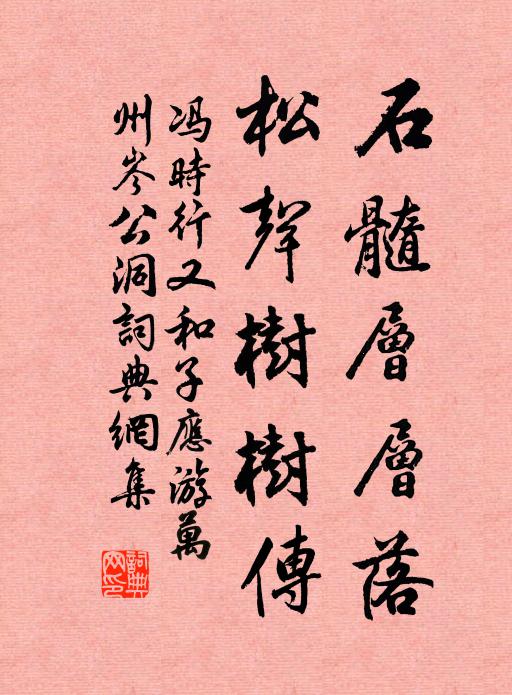 石髓層層落
松聲樹樹傳
冯時行又和子應游萬
州岑公洞詞典網集
詞典網印